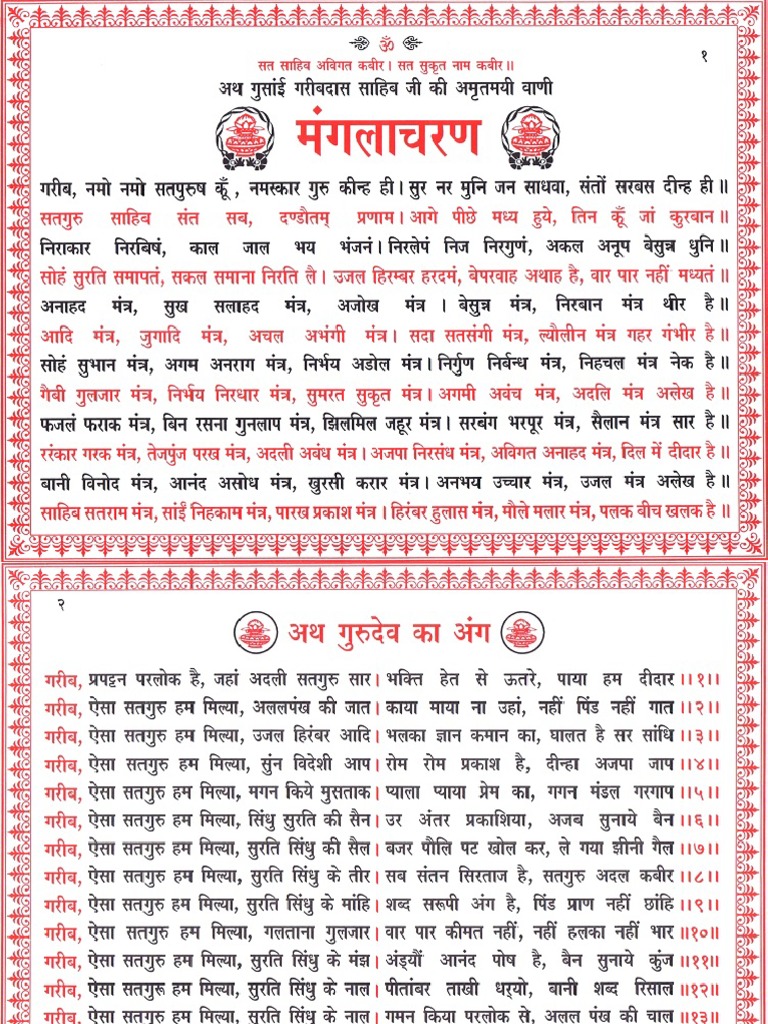 ॐ
सत साहिब अविगत कबीर। सत सुकृत नाम कबीर॥
१
अथ गुसांई गरीबदास साहिब जी की अमृतमयी वाणी
मंगलाचरण
गरीब, नमो नमो सतपुरुष कूँ, नमस्कार गुरु कीन्ह ही। सुर नर मुनि जन साधवा, संतों सरबस दीन्ह ही॥
सतगुरु साहिब संत सब, दण्डौतम् प्रणाम। आगे पीछे मध्य हुये, तिन कूँ जां कुरबान॥
निराकार निरबिषं, काल जाल भय भंजनं। निरलेपं निज निरगुणं, अकल अनूप बेसुन्न धुनि॥
सोहं सुरति समापतं, सकल समाना निरति लै। उजल हिरम्बर हरदमं, बेपरवाह अथाह है, वार पार नहीं मध्यतं॥
अनाहद मंत्र, सुख सलाहद मंत्र, अजोख मंत्र । बेसुन्न मंत्र, निरबान मंत्र थीर है॥
आदि मंत्र, जुगादि मंत्र, अचल अभंगी मंत्र। सदा सतसंगी मंत्र, ल्यौलीन मंत्र गहर गंभीर है॥
सोहं सुभान मंत्र, अगम अनराग मंत्र, निर्भय अडोल मंत्र। निर्गुण निर्वन्ध मंत्र, निहचल मंत्र नेक है॥
गैबी गुलजार मंत्र, निर्भय निरधार मंत्र, सुमरत सुकृत मंत्र। अगमी अवंच मंत्र, अदलि मंत्र अलेख है॥
फजलं फराक मंत्र, बिन रसना गुनलाप मंत्र, झिलमिल जहूर मंत्र। सरबंग भरपूर मंत्र, सैलान मंत्र सार है॥
ररंकार गरक मंत्र, तेजपुंज परख मंत्र, अदली अबंध मंत्र। अजपा निरसंध मंत्र, अविगत अनाहद मंत्र, दिल में दीदार है॥
बानी विनोद मंत्र, आनंद असोध मंत्र, खुरसी करार मंत्र। अनभय उच्चार मंत्र, उजल मंत्र अलेख है॥
साहिब सतराम मंत्र, सांईं निहकाम मंत्र, पारख प्रकाश मंत्र। हिरंबर हुलास मंत्र, मौले मलार मंत्र, पलक बीच खलक है॥
२
अथ गुरुदेव का अंग
गरीब, प्रपट्टन परलोक है, जहां अदली सतगुरु सार। भक्ति हेत से ऊतरे, पाया हम दीदार॥१॥
गरीब, ऐसा सतगुरु हम मिल्या, अललपंख की जात। काया माया ना उहां, नहीं पिंड नहीं गात॥२॥
गरीब, ऐसा सतगुरु हम मिल्या, उजल हिरंबर आदि। भलका ज्ञान कमान का, घालत है सर सांधि॥३॥
गरीब, ऐसा सतगुरु हम मिल्या, सुंन विदेशी आप। रोम रोम प्रकाश है, दीन्हा अजपा जाप॥४॥
गरीब, ऐसा सतगुरु हम मिल्या, मगन किये मुसताक। प्याला प्याया प्रेम का, गगन मंडल गरगाप॥५॥
गरीब, ऐसा सतगुरु हम मिल्या, सिंधु सुरति की सैन। उर अंतर प्रकाशिया, अजब सुनाये बैन॥६॥
गरीब, ऐसा सतगुरु हम मिल्या, सुरति सिंधु की सैल। बजर पौलि पट खोल कर, ले गया झीनी गैल॥७॥
गरीब, ऐसा सतगुरु हम मिल्या, सुरति सिंधु के तीर। सब संतन सिरताज है, सतगुरु अदल कबीर॥८॥
गरीब, ऐसा सतगुरु हम मिल्या, सुरति सिंधु के मांहि। शब्द सरूपी अंग है, पिंड प्राण नहीं छांहि॥९॥
गरीब, ऐसा सतगुरु हम मिल्या, गलताना गुलजार। वार पार कीमत नहीं, नहीं हलका नहीं भार॥१०॥
गरीब, ऐसा सतगुरु हम मिल्या, सुरति सिंधु के मंझ। अंड्यौं आनंद पोष है, बैन सुनाये कुंज॥११॥
गरीब, ऐसा सतगुरू हम मिल्या, सुरति सिंधु के नाल। पीतांबर ताखी धर्‌यो, बानी शब्द रिसाल॥१२॥
गरीब, ऐसा सतगुरु हम मिल्या, सुरति सिंधु के नाल। गमन किया परलोक से, अलल पंख की चाल॥१३॥